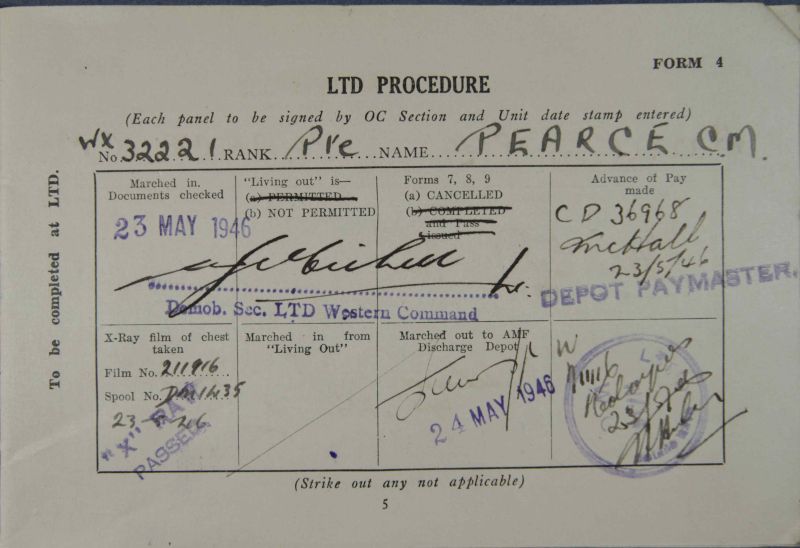 FORM 4
LTD PROCEDURE
(Each panel to be signed by OC Section and Unit date stamp entered)
WX
No. 32221 RANK Pte NAME PEARCE C.M.
To be completed at LTD.
Marched in.
Documents checked
23 MAY 1946
"Living out" is—
(a) PERMITTED
(b) NOT PERMITTED
Forms 7, 8, 9
(a) CANCELLED
(b) COMPLETED
and Pass
issued
Demob. Sec. LTD Western Command
Advance of Pay
made
CD 36968
23/5/46
DEPOT PAYMASTER.
X-Ray film of chest
taken
Film No. 211916
Spool No. DM1435
23-5-46
"X" RAY
PASSED
Marched in from
"Living Out"
Marched out to AMF
Discharge Depot
24 MAY 1946
W
(Strike out any not applicable)
5